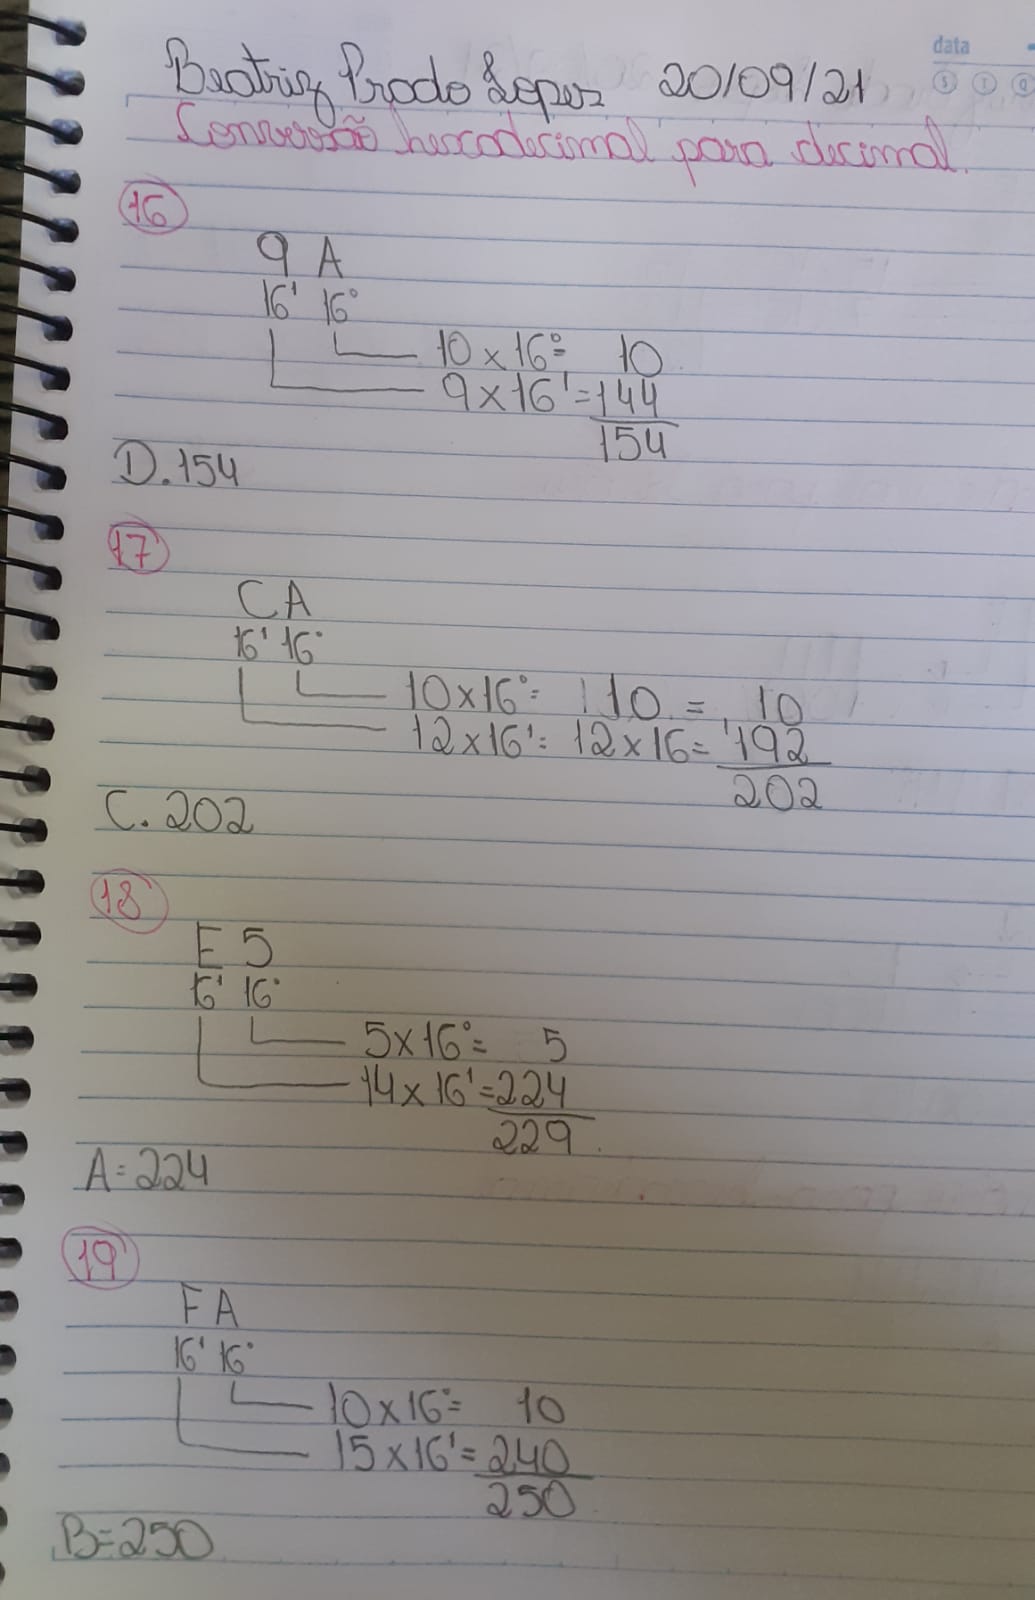 data
Beatriz Prado Lopes 20/09/21
Conversão hexadecimal para decimal.
16
9 A
16¹ 16⁰
10 x 16⁰= 10
9 x 16¹=144
154
D. 154
17
C A
16¹ 16⁰
10 x 16⁰= 110 = 10
12 x 16¹= 12 x 16= 192
202
C. 202
18
E 5
16¹ 16⁰
5 x 16⁰= 5
14 x 16¹=224
229
A=224
19
F A
16¹ 16⁰
10 x 16⁰= 10
15 x 16¹=240
250
B=250